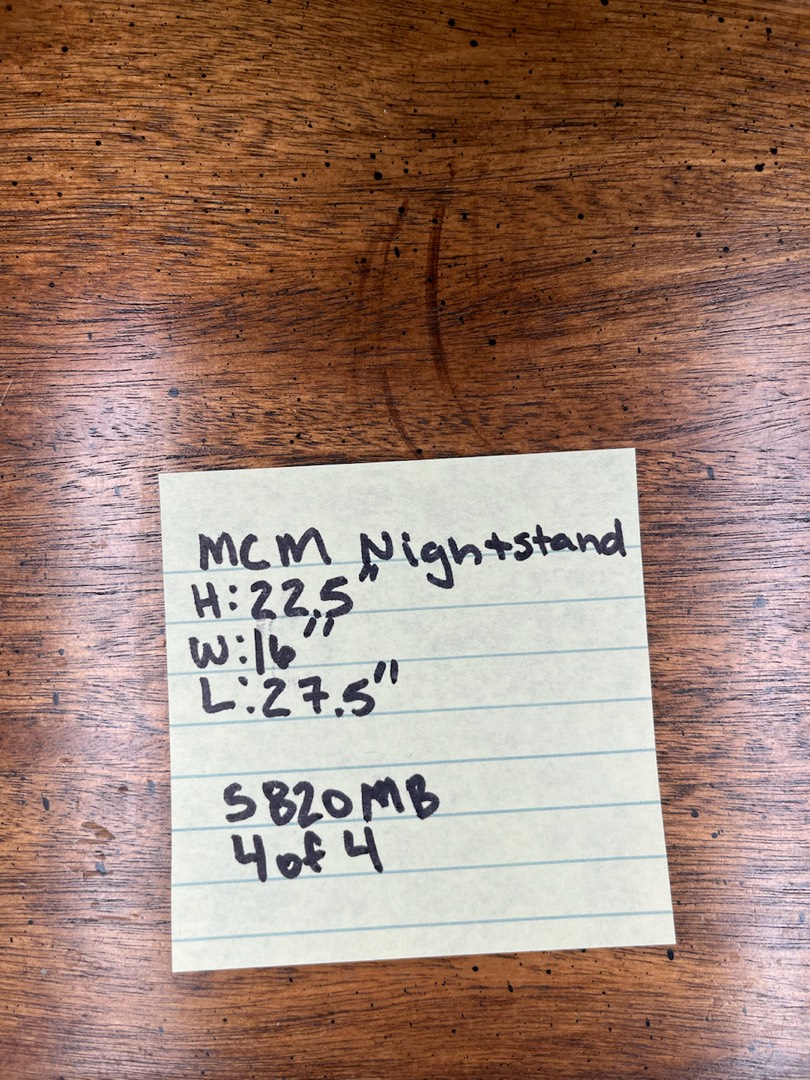 MCM Nightstand
H:22.5"
W:16"
L:27.5"
S820MB
4 of 4